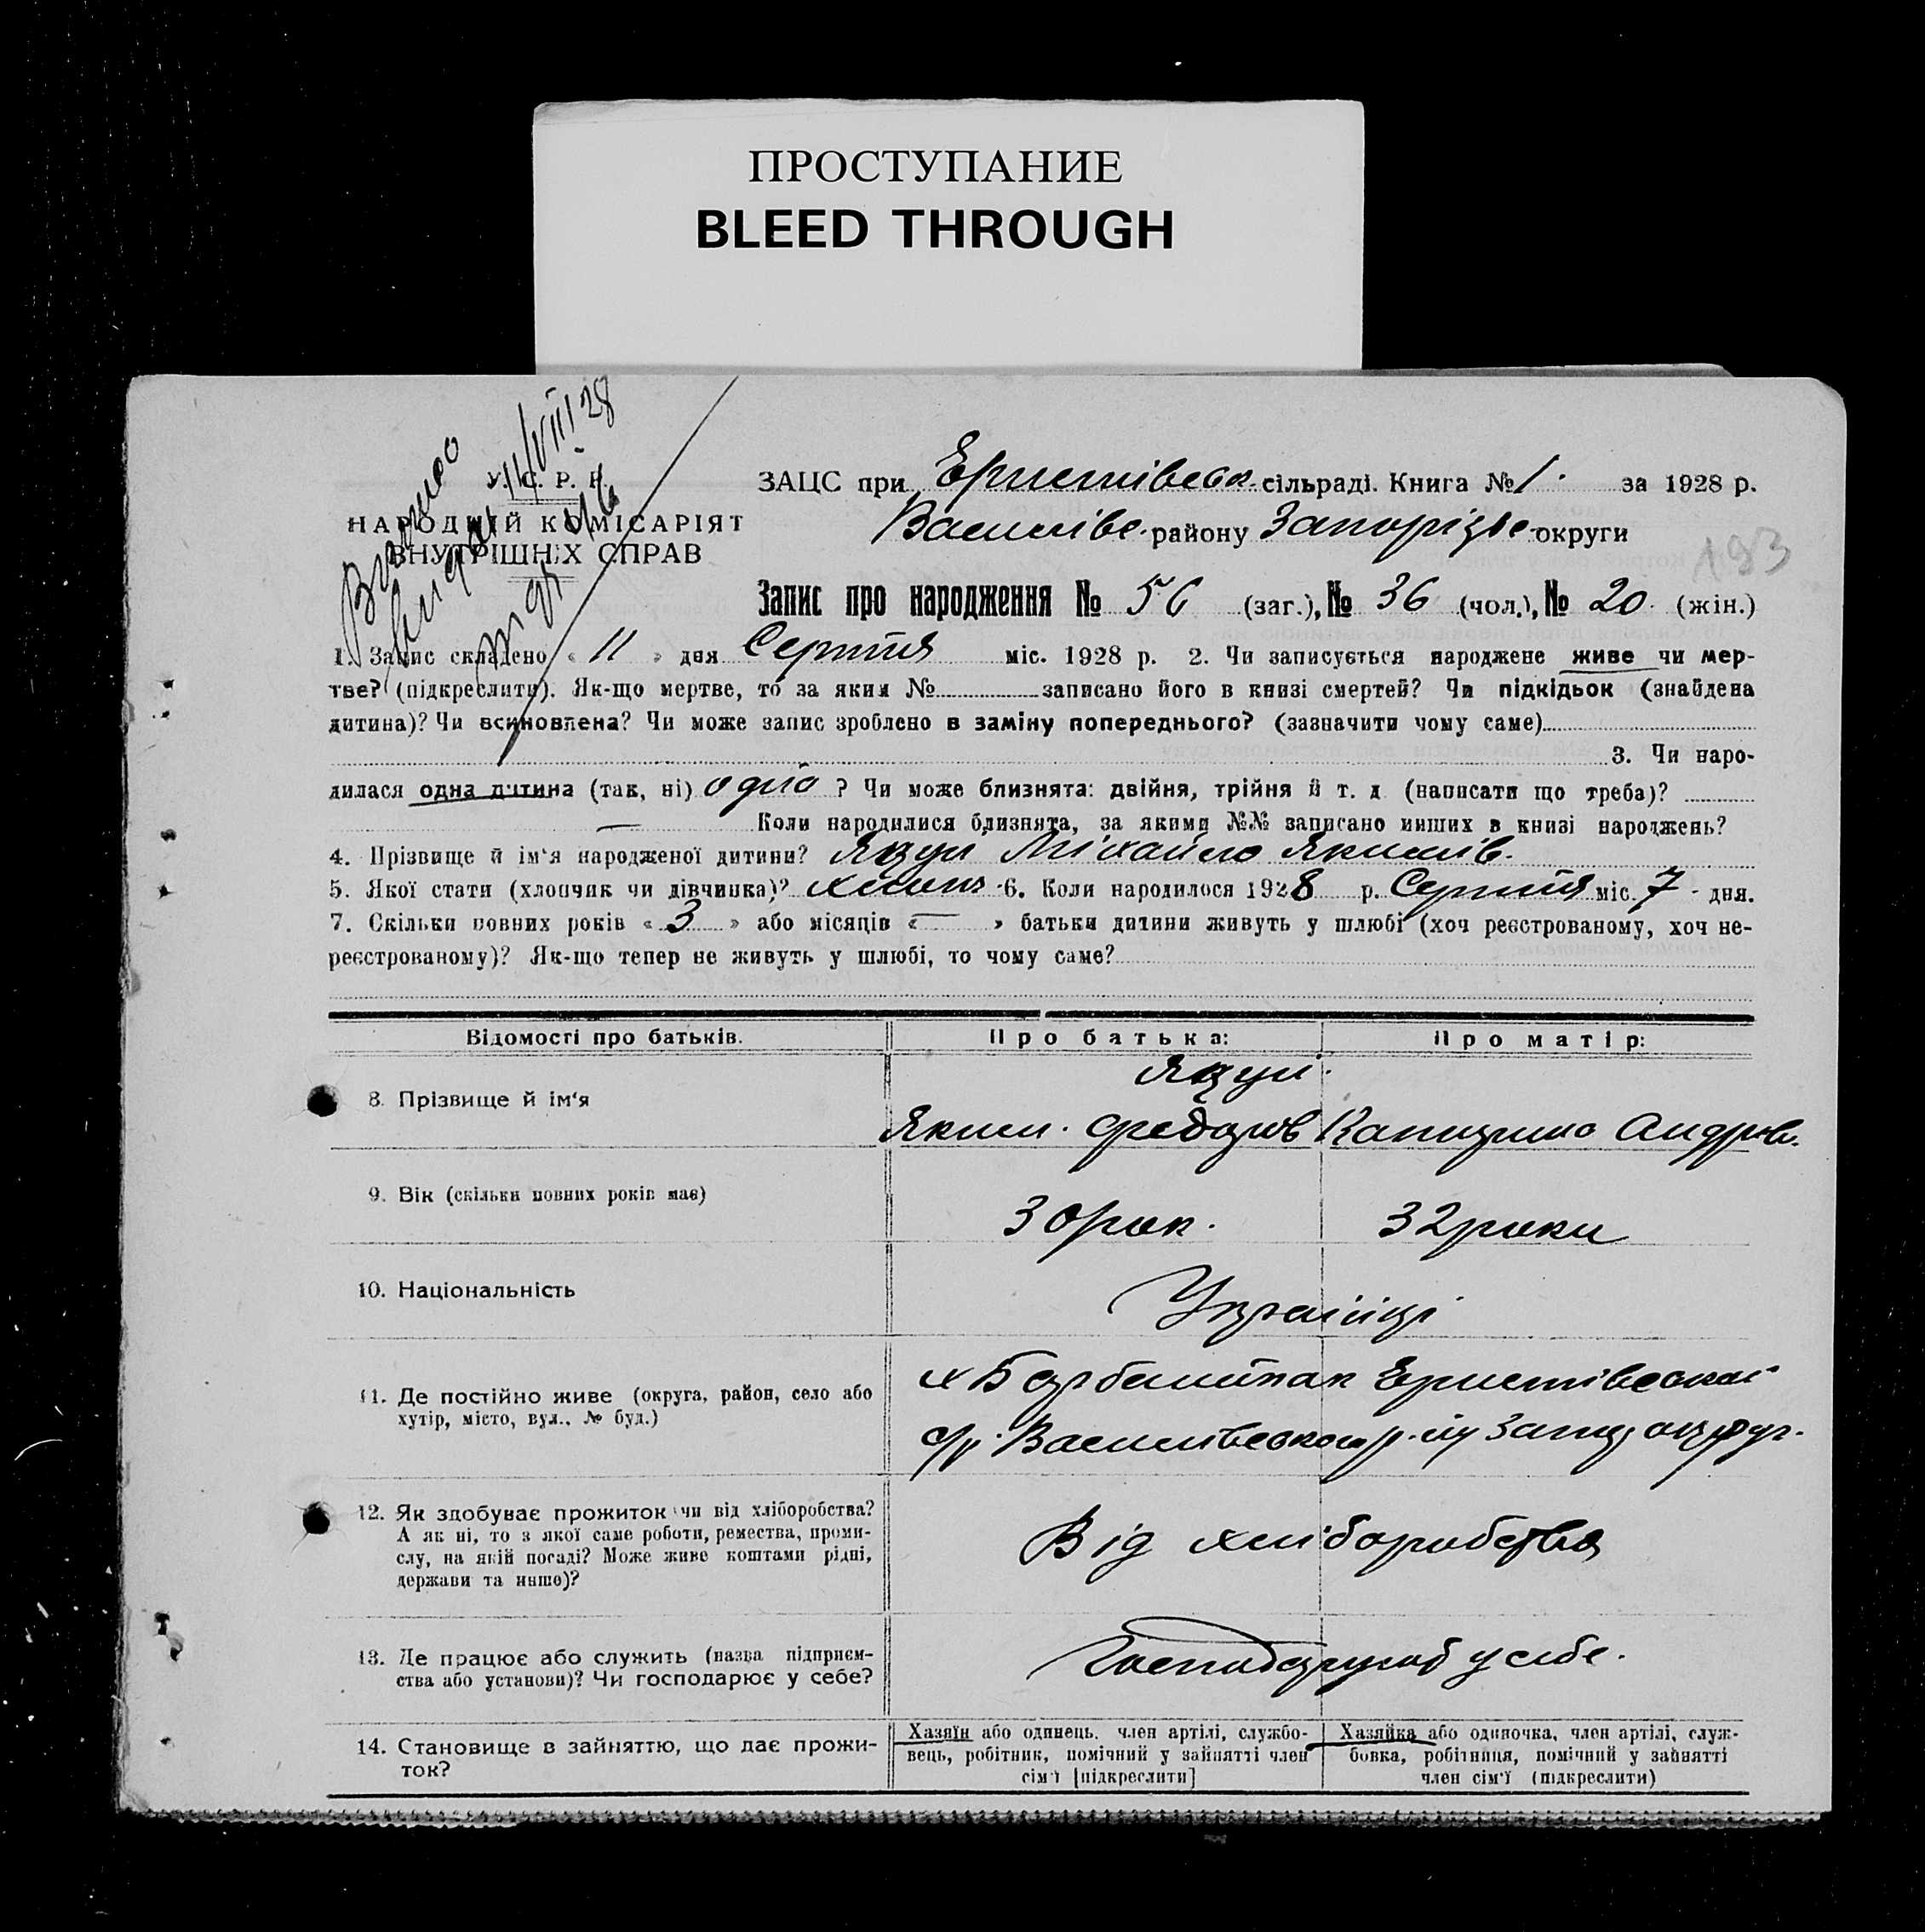 ПРОСТУПАНИЕ
BLEED THROUGH
11/VIII 28
У. С. Р. Р.
НАРОДНІЙ КОМІСАРІЯТ
ВНУТРІШНІХ СПРАВ
ЗАЦС при Еристівськ. сільраді. Книга № 1. за 1928 р.
Василівс. району Запорізьс. округи
193
Запис про народження № 56 (заг.), № 36 (чол.), № 20 (жін.)
1. Запис складено « 11 » дня Серпня міс. 1928 р. 2. Чи записується народжене живе чи мер-
тве? (підкреслити). Як-що мертве, то за яким № записано його в книзі смертей? Чи підкідьок (знайдена
дитина)? Чи всиновлена? Чи може запис зроблено в заміну попереднього? (зазначити чому саме)
3. Чи наро-
дилася одна дитина (так, ні) одно ? Чи може близнята: двійня, трійня й т. д. (написати що треба)?
— Коли народилися близнята, за якими №№ записано инших в книзі народжень?
4. Прізвище й ім‘я народженої дитини? Яцул Міхайло Якимів.
5. Якої стати (хлопчик чи дівчинка)? хлопч. 6. Коли народилося 1928 р. Серпня міс. 7 - дня.
7. Скільки повних років « 3 » або місяців « — » батьки дитини живуть у шлюбі (хоч реєстрованому, хоч не-
реєстрованому)? Як-що тепер не живуть у шлюбі, то чому саме?
Відомості про батьків. Про батька: Про матір:
Яцул.
8. Прізвище й ім‘я
Яким. Федорів Андріїв.
9. Вік (скільки повних років має) 30 рок. 32 роки
10. Національність Українці
11. Де постійно живе (округа, район, село або
хутір, місто, вул., № буд.)
х Еристівської
с/р. Василівського р-ну Запор. округ.
12. Як здобуває прожиток чи від хліборобства?
А як ні, то з якої саме роботи, ремества, проми-
слу, на якій посаді? Може живе коштами рідні,
держави та инше)?
Від хліборобства
13. Де працює або служить (назва підприєм-
ства або установи)? Чи господарює у себе?
Господарюют у себе.
14. Становище в зайняттю, що дає прожи-
ток?
Хазяїн або одинець, член артілі, службо-
вець, робітник, помічний у зайнятті член
сім‘ї [підкреслити]
Хазяйка або одиночка, член артілі, служ-
бовка, робітниця, помічний у зайнятті
член сім‘ї (підкреслити)